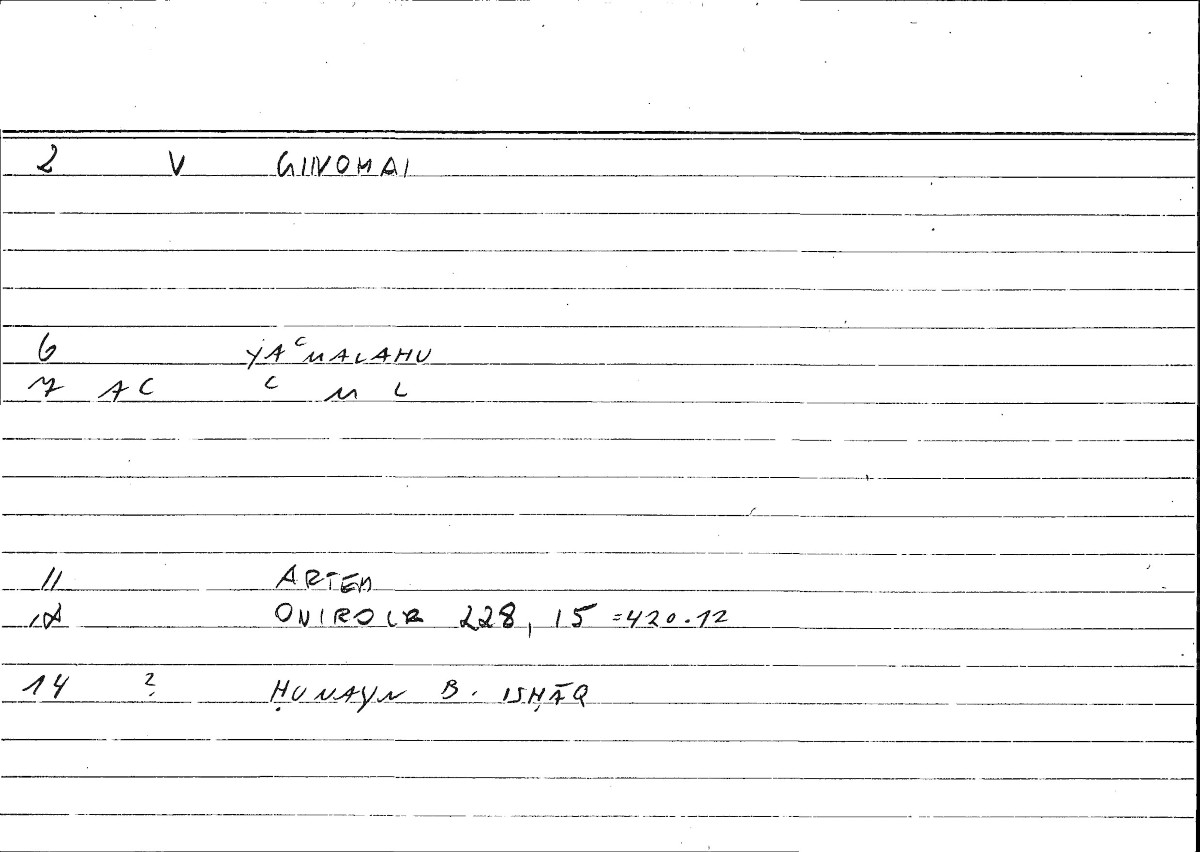 2 V GINOMAI
6 YAᶜMALAHU
7 AC ᶜ M L
11 ARTEM
12 ONIROCR 228, 15 =420.12
14 ? ḤUNAYN B. ISḤĀQ